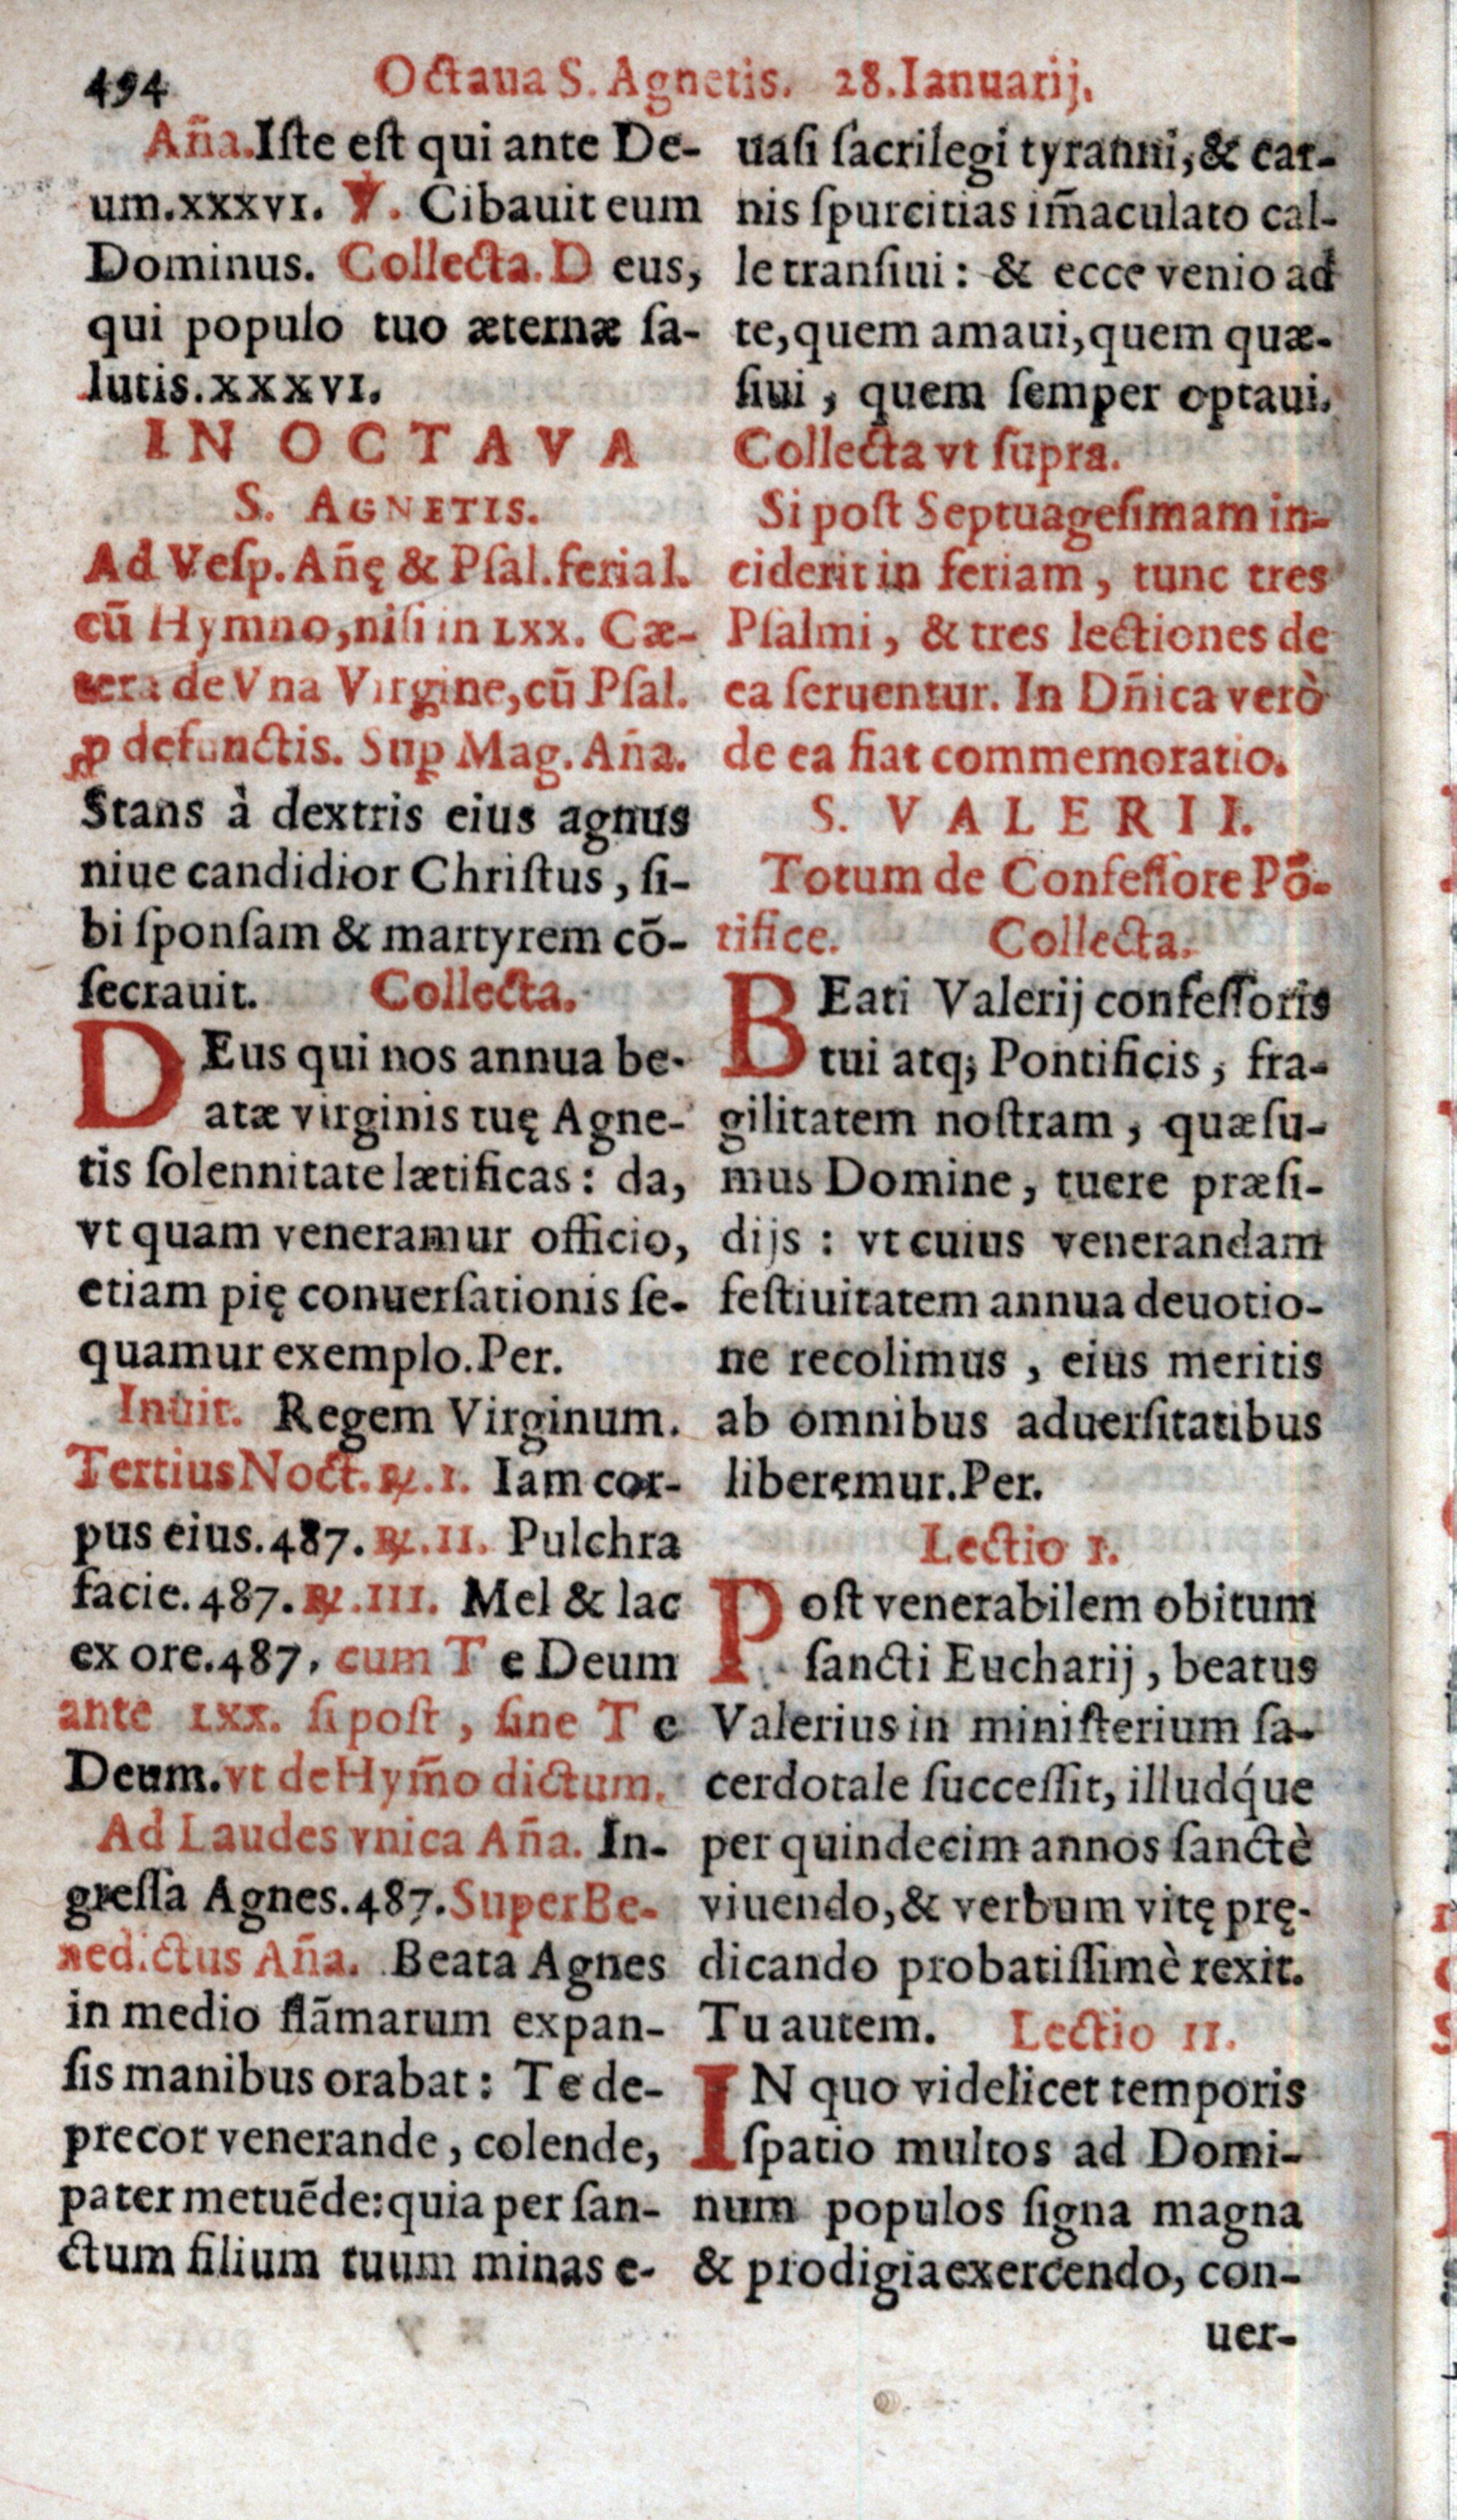 494 Octaua S. Agnetis. 28. Ianuarij.
Añа. Iſte eſt qui ante De-
um. xxxvı. ℣. Cibauit eum
Dominus. Collecta. D eus,
qui populo tuo æternæ ſa-
lutis. xxxvı.
IN OCTAVA
S. AGNETIS.
Ad Veſp. Añę & Pſal. ferial.
cū Hymno, niſi in lxx. Cæ-
tera de Vna Virgine, cū Pſal.
ꝓ defunctis. Suꝑ Mag. Aña.
Stans à dextris eius agnus
niue candidior Chriſtus, ſi-
bi ſponſam & martyrem cō-
ſecrauit. Collecta.
DEus qui nos annua be-
atæ virginis tuę Agne-
tis ſolennitate lætificas: da,
vt quam veneramur officio,
etiam pię conuerſationis ſe-
quamur exemplo. Per.
Inuit. Regem Virginum.
Tertius Noct. ℟. ı. Iam cor-
pus eius. 487. ℟. ıı. Pulchra
facie. 487. ℟. ııı. Mel & lac
ex ore. 487, cum T e Deum
ante lxx. ſi poſt, ſine T e
Deum. vt de Hym̄o dictum.
Ad Laudes vnica Aña. In-
greſſa Agnes. 487. Super Be-
nedictus Aña. Beata Agnes
in medio flāmarum expan-
ſis manibus orabat: Te de-
precor venerande, colende,
pater metuēde: quia per ſan-
ctum filium tuum minas e-
uaſi ſacrilegi tyranni, & car-
nis ſpurcitias im̄aculato cal-
le tranſiui: & ecce venio ad
te, quem amaui, quem quæ-
ſiui, quem ſemper optaui.
Collecta vt ſupra.
Si poſt Septuageſimam in-
ciderit in feriam, tunc tres
Pſalmi, & tres lectiones de
ea ſeruentur. In Dñica verò
de ea fiat commemoratio.
S. VALERII.
Totum de Confeſſore Pō-
tifice. Collecta.
BEati Valerij confeſſoris
tui atq; Pontificis, fra-
gilitatem noſtram, quæſu-
mus Domine, tuere præſi-
dijs: vt cuius venerandam
feſtiuitatem annua deuotio-
ne recolimus, eius meritis
ab omnibus aduerſitatibus
liberemur. Per.
Lectio ı.
Poſt venerabilem obitum
ſancti Eucharij, beatus
Valerius in miniſterium ſa-
cerdotale ſucceſſit, illudq́ue
per quindecim annos ſanctè
viuendo, & verbum vitę prę-
dicando probatiſſimè rexit.
Tu autem. Lectio ıı.
IN quo videlicet temporis
ſpatio multos ad Domi-
num populos ſigna magna
& prodigia exercendo, con-
uer-